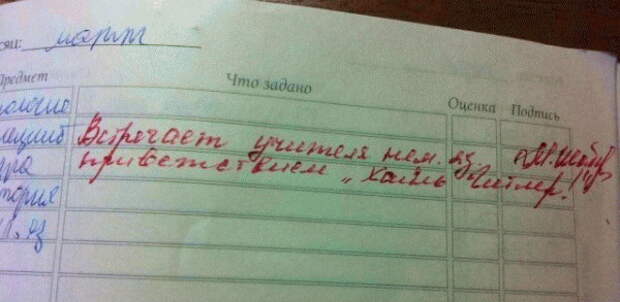 сяц: март
Предмет Что задано Оценка Подпись
Встречает учителя нем. яз.
приветствием „Хайль Гитлер!"